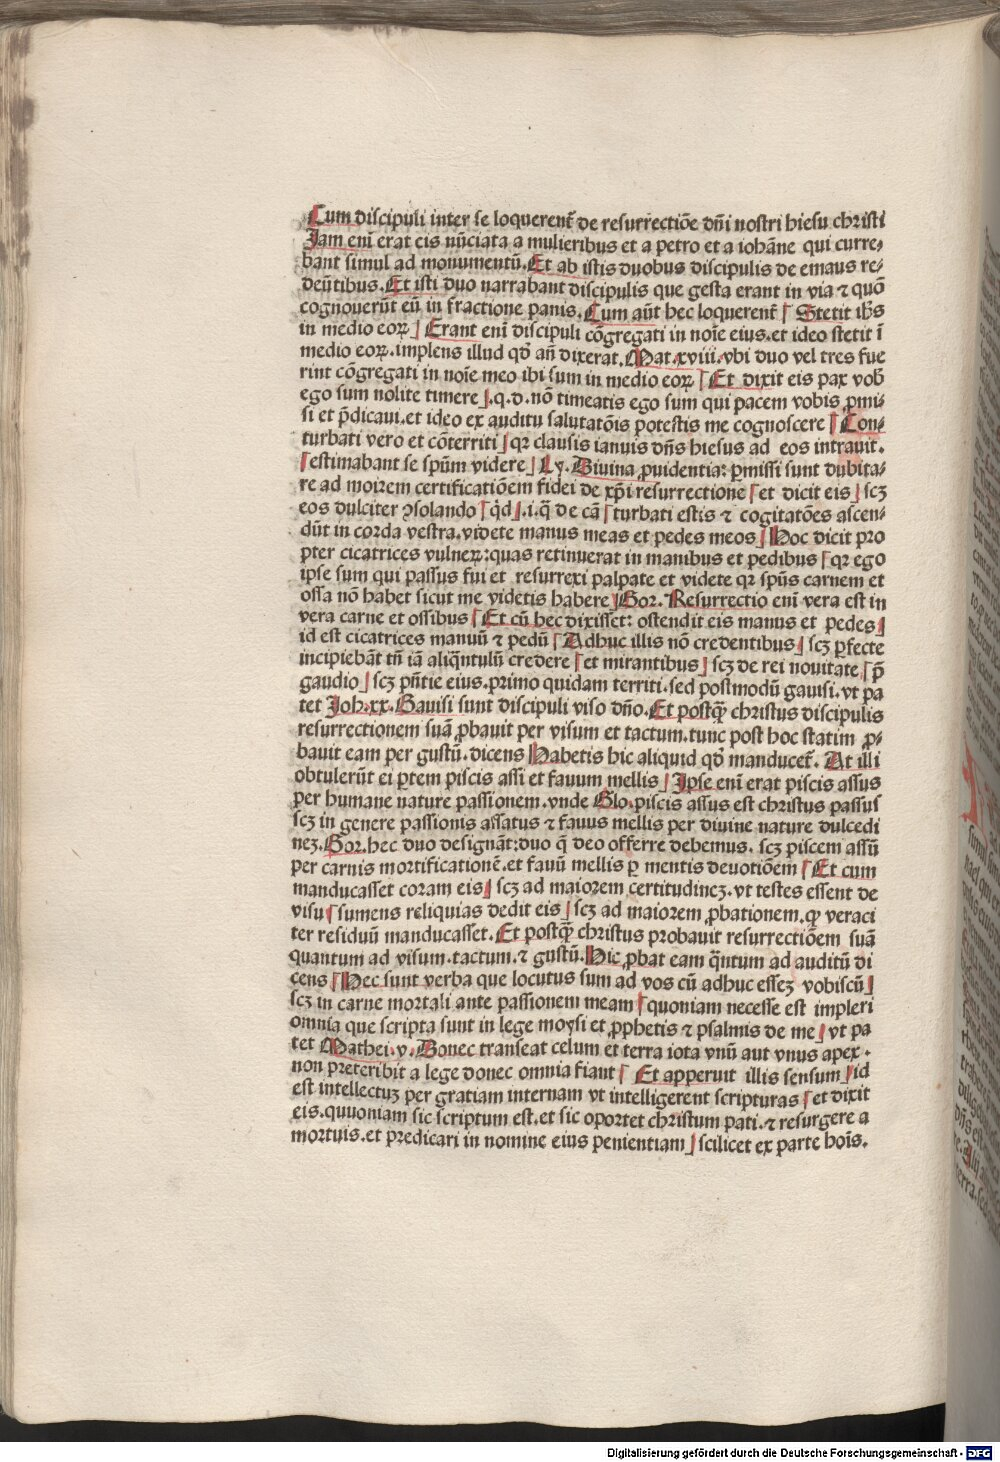 Cum discipuli inter se loquerent̃ de resurrectiõe dñi nostri hiesu christi
Jam eni̅ erat eis nũciata a mulieribus et a petro et a iohãne qui curre⸗
bant simul ad monumentũ. Et ab istis duobus discipulis de emaus re⸗
deũtibus. Et isti duo narrabant discipulis que gesta erant in via ⁊ quõ
cognouerũt eũ in fractione panis. Cum aũt hec loquerent̃ Stetit ih̃s
in medio eoꝝ Erant eni̅ discipuli cõgregati in noi̅e eius. et ideo stetit i̅
medio eoꝝ. implens illud qď añ dixerat. Mat. xviii. vbi duo vel tres fue
rint cõgregati in noi̅e meo ibi sum in medio eoꝝ Et dixit eis pax vob̃
ego sum nolite timere .q. d. nõ timeatis ego sum qui pacem vobis ꝓmi⸗
si et p̃dicaui. et ideo ex auditu salutatõis potestis me cognoscere Con⸗
turbati vero et cõterriti qꝛ clausis ianuis dñs hiesus ad eos intrauit.
estimabant se spũm videre Ly. Diuina ꝓuidentia: ꝑmissi sunt dubita⸗
re ad moiꝛem certificatiõem fidei de xp̃i resurrectione et dicit eis scꝫ
eos dulciter ꝯsolando qͥd .i. q̃ de cã turbati estis ⁊ cogitatões ascen⸗
dũt in corda vestra. videte manus meas et pedes meos Hoc dicit pro
pter cicatrices vulneꝝ: quas retinuerat in manibus et pedibus qꝛ ego
ipse sum qui passus fui et resurrexi palpate et videte qꝛ spũs carnem et
ossa nõ habet sicut me videtis habere Gor. Resurrectio eni̅ vera est in
vera carne et ossibus Et cũ hec dixisset: ostendit eis manus et pedes
id est cicatrices manuũ ⁊ pedũ Adhuc illis nõ credentibus scꝫ ꝑfecte
incipiebãt tñ iã aliq̃ntulũ credere et mirantibus scꝫ de rei nouitate p̃
gaudio scꝫ pñtie eius. primo quidam territi. sed postmodũ gauisi. vt pa
tet Joh. xx. Gauisi sunt discipuli viso dño. Et postꝙ̃ christus discipulis
resurrectionem suã ꝓbauit per visum et tactum. tunc post hoc statim ꝓ⸗
bauit eam per gustũ. dicens Habetis hic aliquid qď manducet̃. At illi
obtulerũt ei ꝑtem piscis assi et fauum mellis Ipse eni̅ erat piscis assus
per humane nature passionem. vnde Glo. piscis assus est christus passus
scꝫ in genere passionis assatus ⁊ fauus mellis per diuine nature dulcedi
neꝫ. Gor. hec duo designãt: duo q̃ deo offerre debemus. scꝫ piscem assũ
per carnis mortificationẽ. et fauũ mellis ꝑ mentis deuotiõem Et cum
manducasset coram eis scꝫ ad maiorem certitudineꝫ. vt testes essent de
visu sumens reliquias dedit eis scꝫ ad maiorem ꝓbationem. ꝙ veraci
ter residuũ manducasset. Et postꝙ̃ christus probauit resurrectiõem suã
quantum ad visum. tactum. ⁊ gustũ. Hic ꝓbat eam q̃ntum ad auditũ di
cens Hec sunt verba que locutus sum ad vos cũ adhuc esseꝫ vobiscũ
scꝫ in carne mortali ante passionem meam quoniam necesse est impleri
omnia que scripta sunt in lege moysi et ꝓphetis ⁊ psalmis de me vt pa
tet Mathei. v. Donec transeat celum et terra iota vnũ aut vnus apex.
non preteribit a lege donec omnia fiant Et apperuit illis sensum id
est intellectuꝫ per gratiam internam vt intelligerent scripturas et dixit
eis. quuoniam sic scriptum est. et sic oportet christum pati. ⁊ resurgere a
mortuis. et predicari in nomine eius penientiam scilicet ex parte hoi̅s.
Digitalisierung gefördert durch die Deutsche Forschungsgemeinschaft - DFG